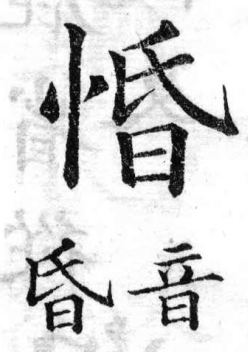 惛
音昏